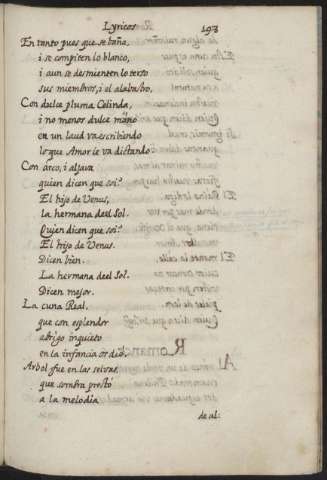 Lyricos 193
En tanto pues que se baña,
i se compiten lo blanco,
i aun se desmienten lo terso
sus miembros, i el alabastro,
Con dulce pluma Celinda,
i no menos dulce mano
en un laud va escribiendo
lo que Amor le va dictando
Con arco, i aljava
quien dicen que soi?
El hijo de Venus,
la hermana deel Sol.
Quien dicen que soi?
El hijo de Venus.
Dicen bien.
La hermana deel Sol.
Dicen mejor.
La cuna Real.
que con esplendor
abrigo inquieto
en la infancia os dio.
Arbol fue en las selvas,
que sombra prestó
a la melodia
de al: